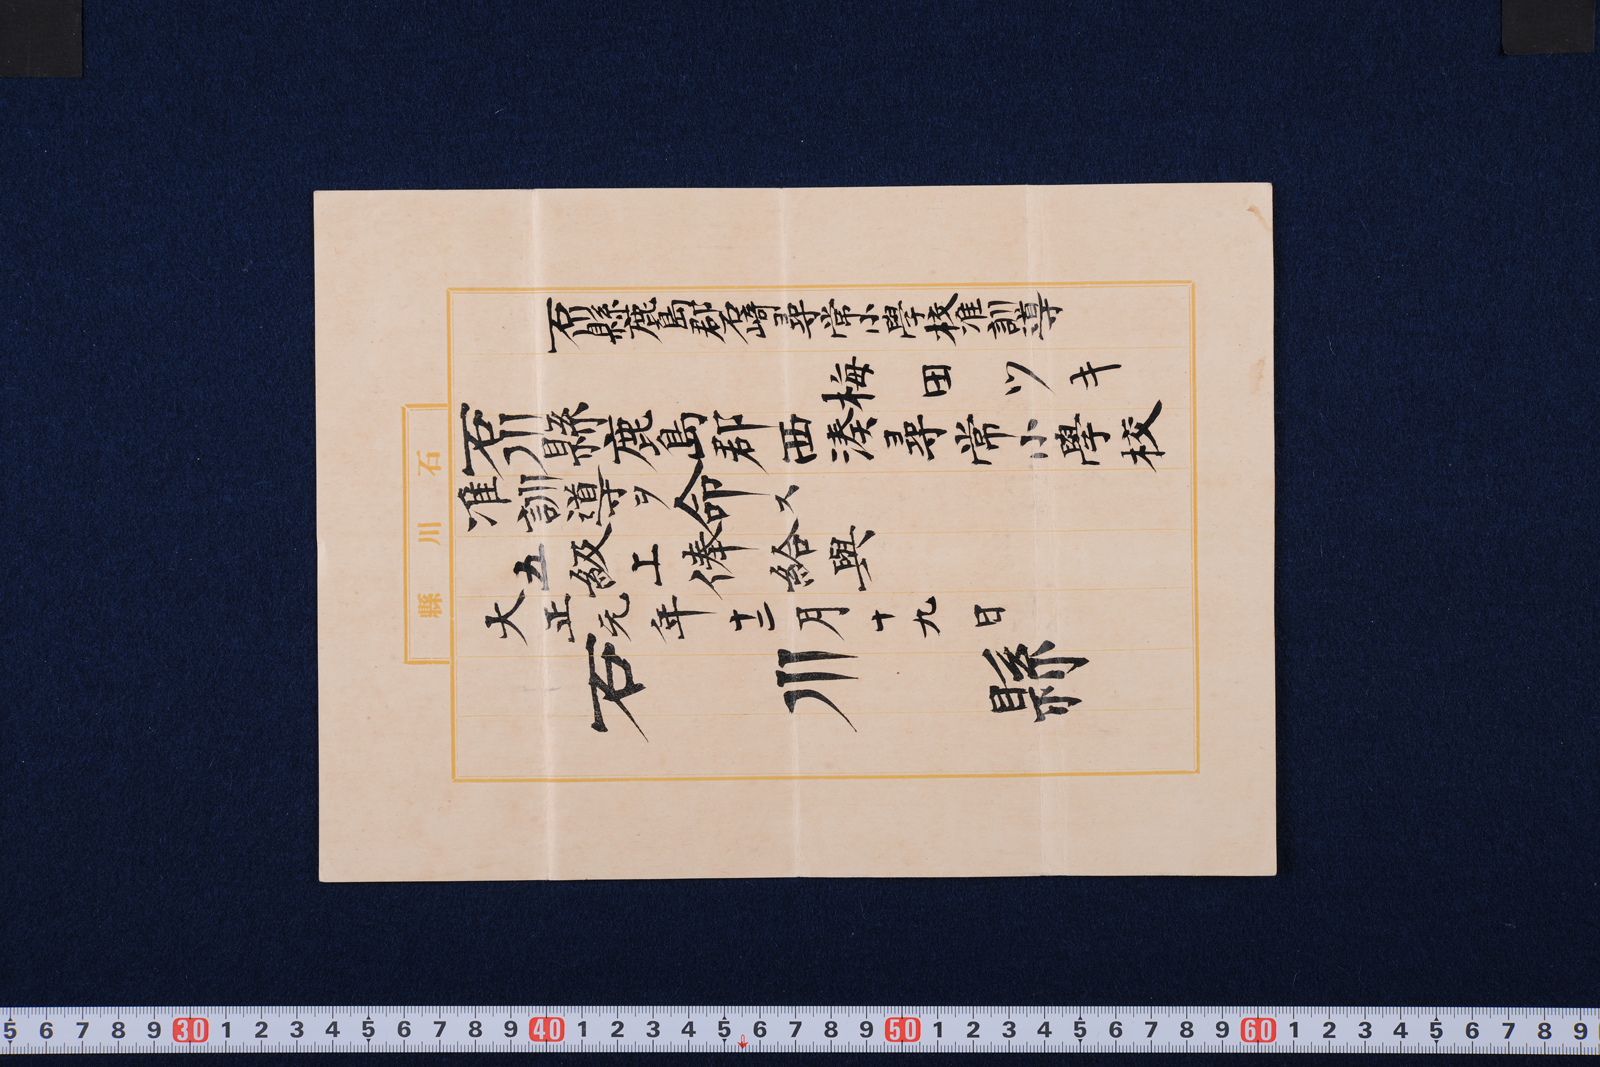 石川縣鹿島郡石崎尋常小學校准訓導
梅田ツキ
石川縣鹿島郡西湊尋常小學校
准訓導ヲ命ス
五級上俸給與
大正元年十二月十九日
石川縣
石川縣
5 6 7 8 9 30 1 2 3 4 5 6 7 8 9 40 1 2 3 4 5 6 7 8 9 50 1 2 3 4 5 6 7 8 9 60 1 2 3 4 5 6 7 8 9